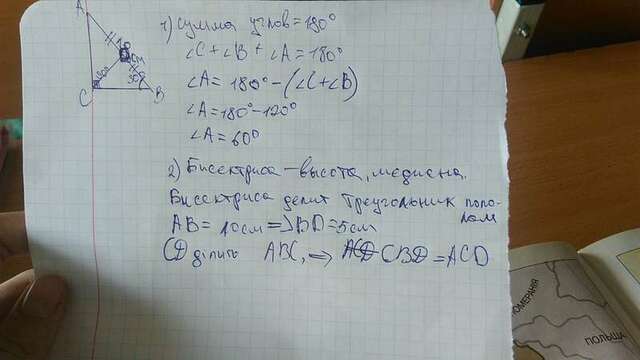 A
C
B
1) сумма углов = 180°
∠C + ∠B + ∠A = 180°
∠A = 180° - (∠C + ∠B)
∠A = 180° - 120°
∠A = 60°
2) Бисектриса - высота, медиана.
Бисектриса делит треугольник попо-
лам
AB = 10см => BD = 5см
CD ділить ABC, => CBD = ACD
ПОМЕРАНИЯ
ПОЛЬША